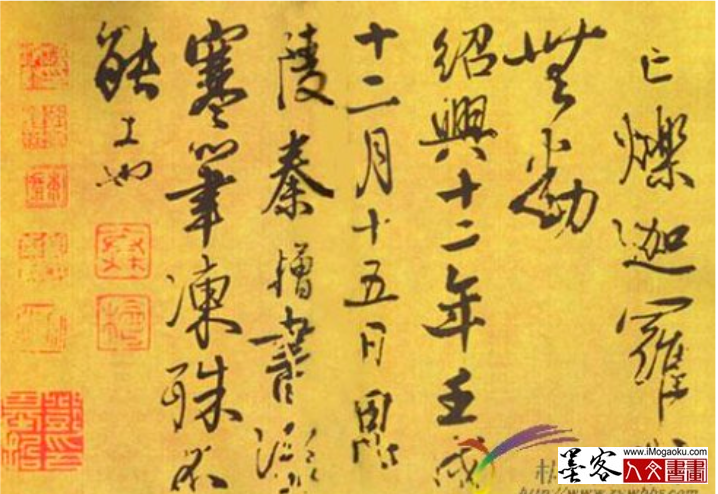 亡爍迦羅
無動
紹興十二年壬戌
十二月十五日
陵秦檜書深
寒筆凍殊不
能工也
墨客
www.iMogaoku.com
人文書畫